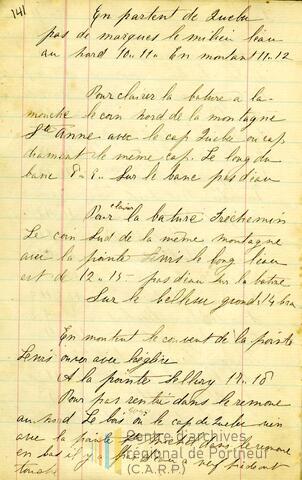 141
En partent de Quebec
pas de marques le milieu l'eau
au nord 10.11. En montant 11.12
Pour clairer la bature a la
mouche le coin nord de la montagne
Ste Anne avec le cap Quebec ou cap
diamant le même cap. Le long du
banc 8. Sur le banc pas d'eau
Pour clairer la bature Fréchemin
Le coin Sud de la même montagne
avec la pointe Levis le long l'eau
est de 12 .15 pas d'eau sur la bature
Sur le grond 14 bra
En montent le couvent de la pointe
Levis ouver avec l'eglise
A la pointe Sillery 17.18
Pour pas rentré dans le remoue
au Nord Le bois ou le cap de Quebec
avec la pointe dans le remoue
en bas il y a neuf
touche
Centre d'archives
régional de Portneuf
(C.A.R.P.)